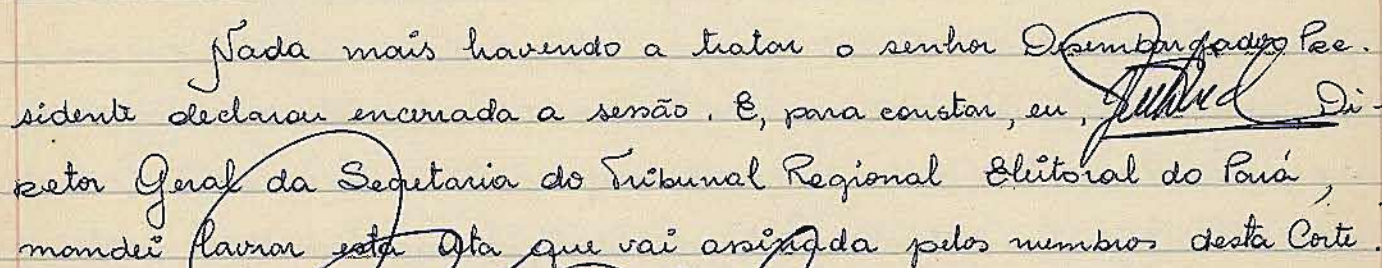 Nada mais havendo a tratar o senhor Desembargador Pre-
sidente declarou encerrada a sessão. E, para constar, eu, Di-
retor Geral da Secretaria do Tribunal Regional Eleitoral do Pará,
mandei lavrar esta Ata que vai assinada pelos membros desta Corte.